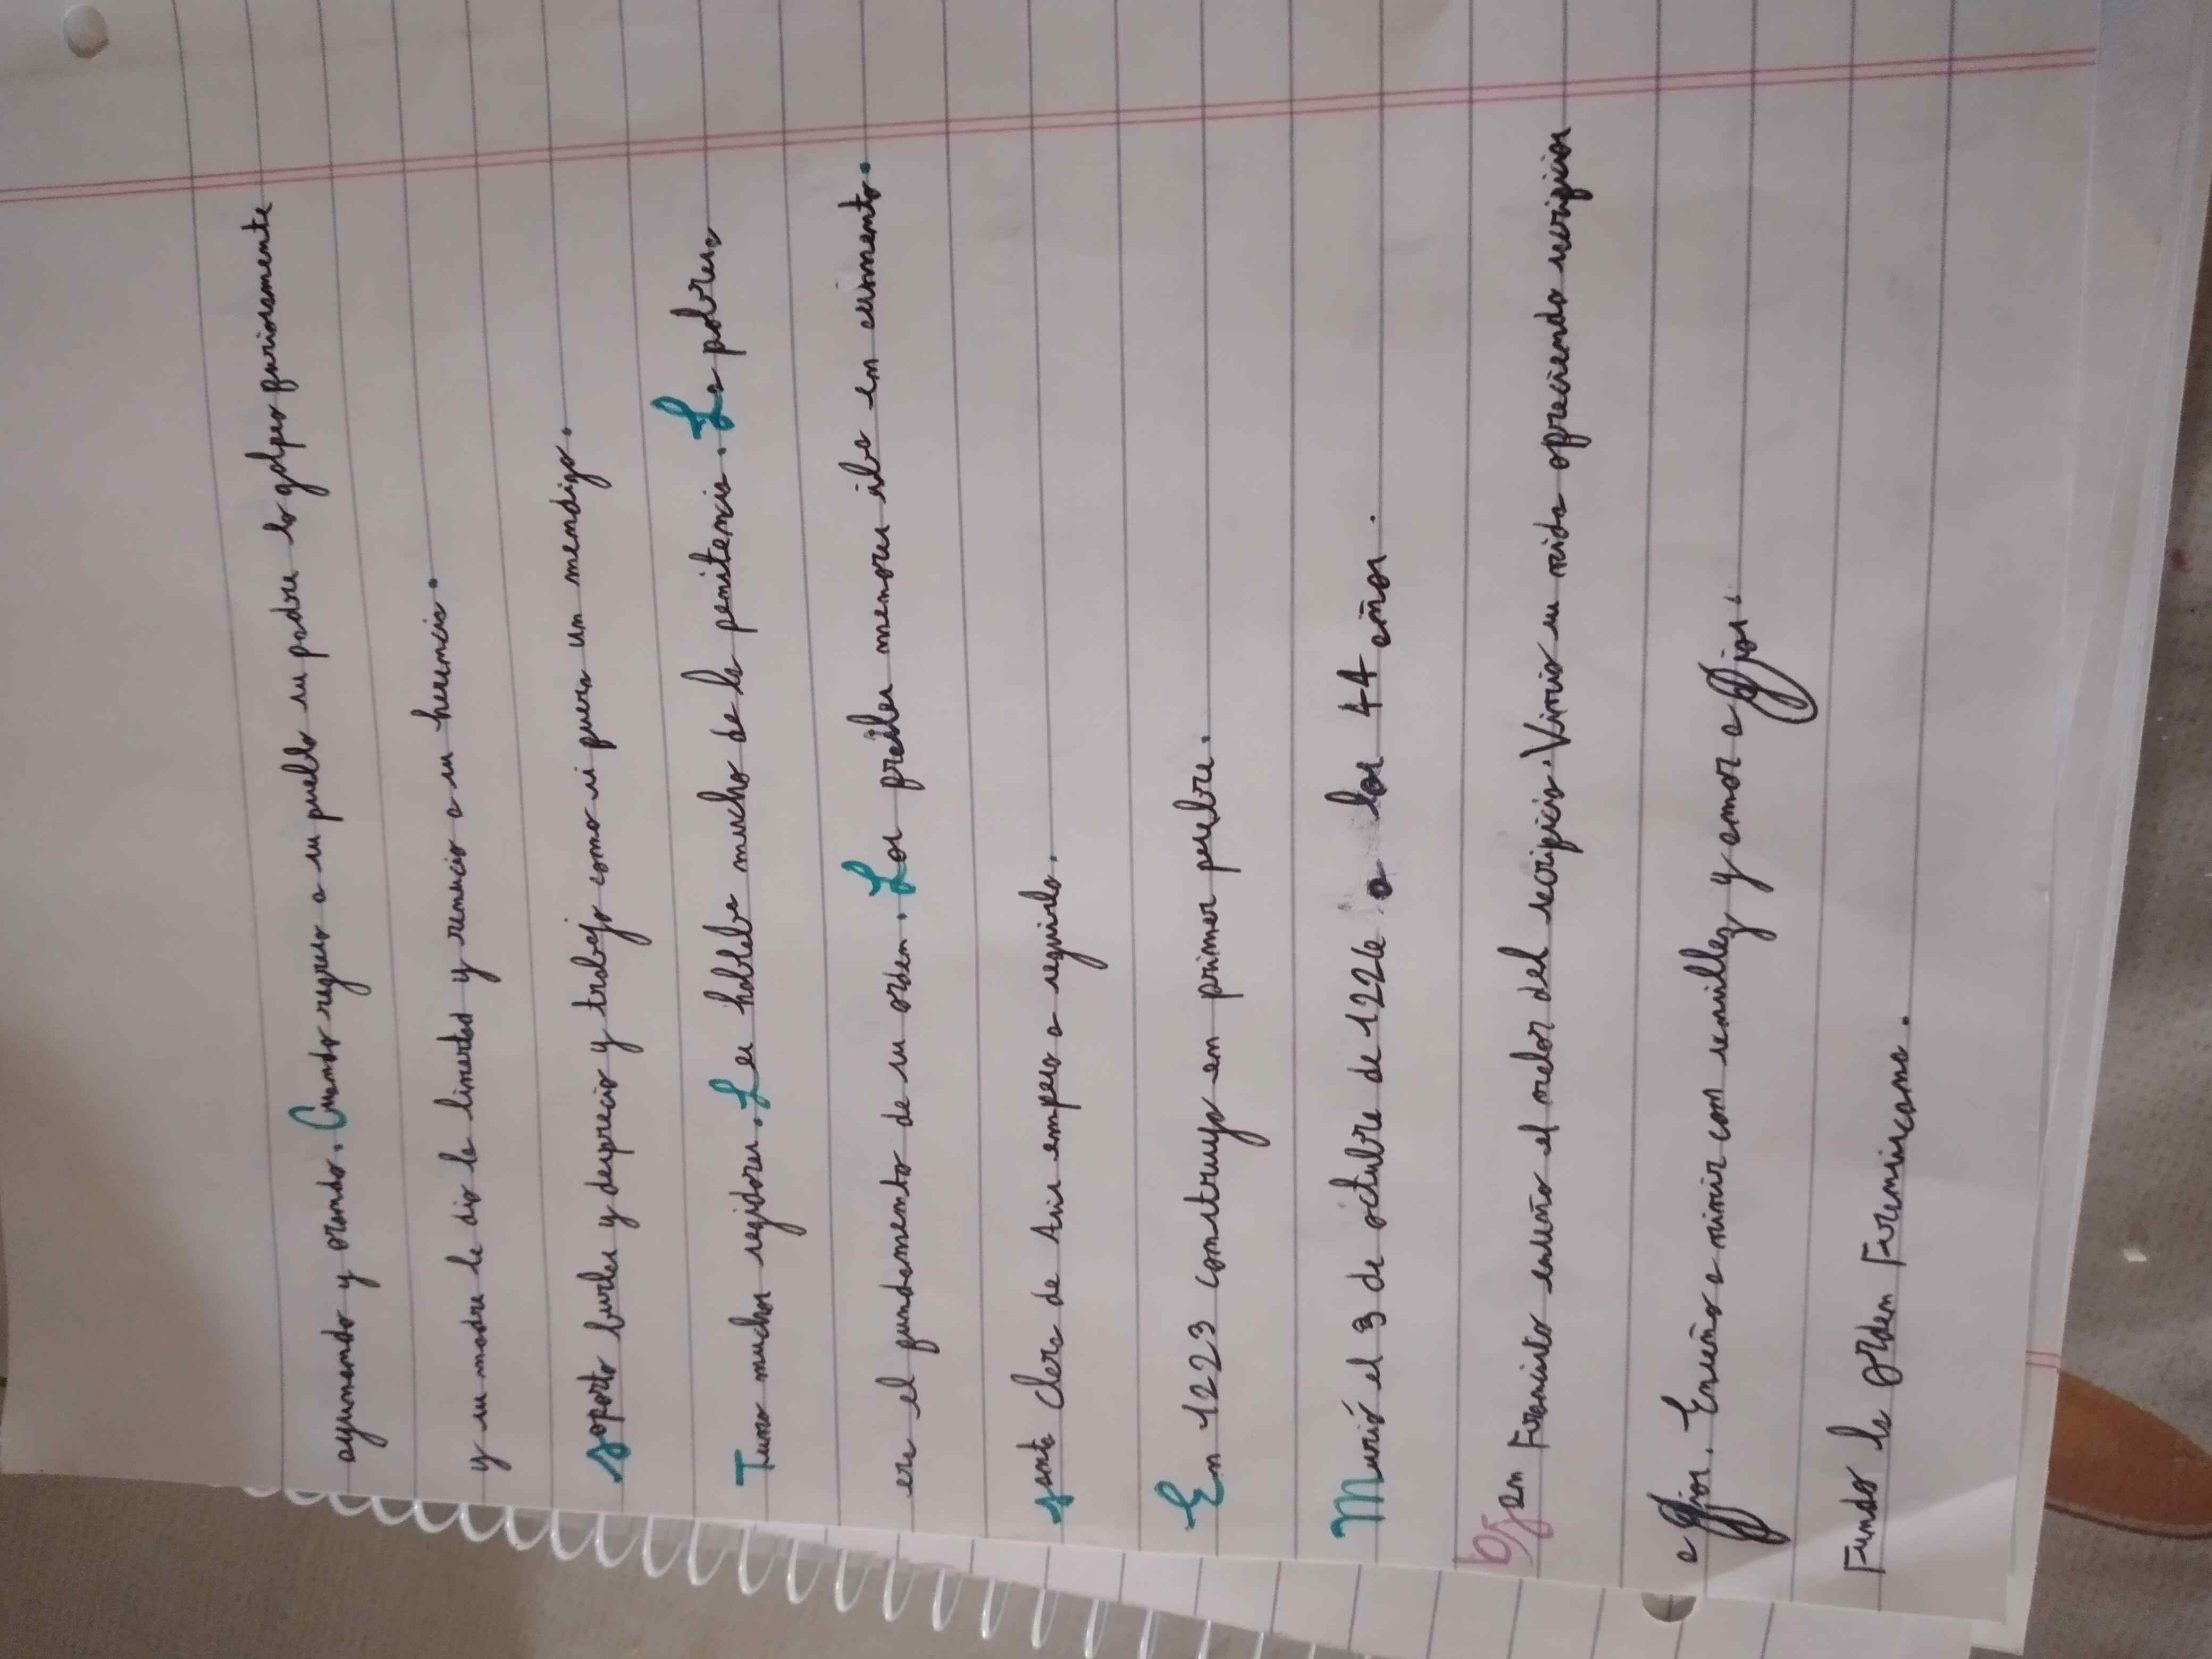 ayunando y orando. Cuando regreso a su pueblo su padre lo golpeo furiosamente
y su madre le dio la livertad y renuncio a su herencia.
Soporto burlas y desprecio y trabajo como si fuera un mendigo.
Tuvo muchos segidores. Les hablaba mucho de la penitencia. La pobreza
era el fundamento de su orden. Los frailes menores iba en aumento.
Santa Clara de Asis empezo a seguirlo.
En 1223 construyo en primer pesebre.
Murió el 3 de octubre de 1226 a los 44 años.
b) San Francisco enseño el valor del sacrificio. Vivio su vida ofreciendo sacrificios
a Dios. Enseño a vivir con sencillez y amor a Dios.
Fundo la orden Franciscana.